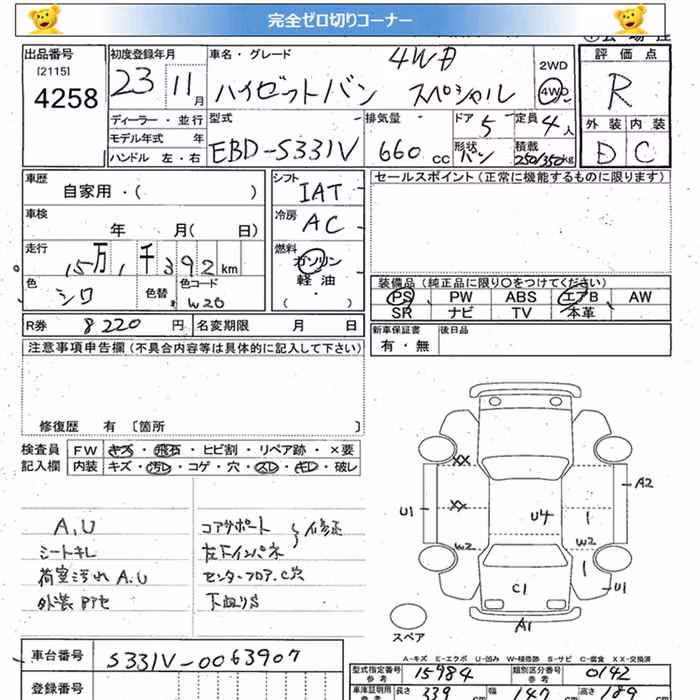 完全ゼロ切りコーナー
出品番号 [2115] 4258
初度登録年月 23 11月
車名・グレード 4WD ハイゼットバン スペシャル
2WD 4WD
評価点 R
外装 内装
D C
ディーラー・並行
モデル年式 年
ハンドル 左・右
型式 EBD-S331V
排気量 660 cc
ドア 5 定員 4人
形状 バン 積載 250/350kg
車歴 自家用・( )
シフト IAT
セールスポイント(正常に機能するものに限ります)
車検 年 月( 日)
冷房 AC
走行 15万1千392km
燃料 ガソリン
軽油
・( )
色 シロ 色替 色コード W20
装備品(純正品に限り〇をつけてください)
PS PW ABS エアB AW
SR ナビ TV 本革
R券 8220円 名変期限 月 日
新車保証書 有・無 後日品
注意事項申告欄(不具合内容等は具体的に記入して下さい)
修復歴 有〔箇所 〕
検査員記入欄
FW キズ・飛石・ヒビ割・リペア跡・×要
内装 キズ・汚レ・コゲ・穴・スレ・キレ・破レ
A,U
シートキレ
荷室汚れ A.U
コアサポート
左右インパネ
修正
センターフロア.C穴
下廻りS
XX
XX
W2
U1
U4
1
A2
W2
1
U1
C1
A1
スペア
A-キズ E-エクボ U-凹み W-補修跡 S-サビ C-腐食 XX-交換済
車台番号 S331V-0063907
型式指定番号 参考 15984
類別区分番号 参考 0142
登録番号
車庫証明用 参考 長さ 339 幅 147 高さ 189